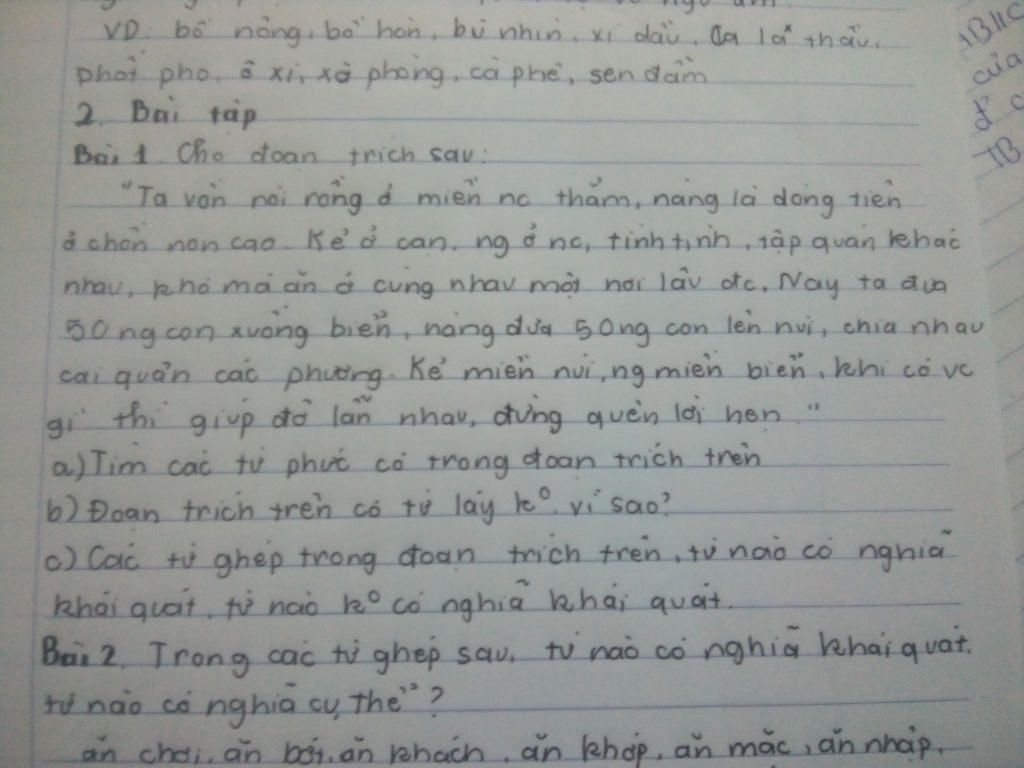 VD: bồ nông, bồ hòn, bù nhìn, xì dầu, ca la thầu,
phốt pho, ô xi, xà phòng, cà phê, sen đầm
2. Bài tập
Bài 1. Cho đoạn trích sau:
"Ta vốn nòi rồng ở miền nc thẳm, nàng là dòng tiên
ở chốn non cao. Kẻ ở cạn, ng ở nc, tính tình, tập quán khác
nhau, khó mà ăn ở cùng nhau một nơi lâu đc. Nay ta đưa
50 ng con xuống biển, nàng đưa 50 ng con lên núi, chia nhau
cai quản các phương. Kẻ miền núi, ng miền biển, khi có vc
gì thì giúp đỡ lẫn nhau, đừng quên lời hẹn."
a) Tìm các từ phức có trong đoạn trích trên
b) Đoạn trích trên có từ láy k⁰. Vì sao?
c) Các từ ghép trong đoạn trích trên, từ nào có nghĩa
khái quát, từ nào k⁰ có nghĩa khái quát.
Bài 2. Trong các từ ghép sau, từ nào có nghĩa khái quát,
từ nào có nghĩa cụ thể?
ăn chơi, ăn bớt, ăn khách, ăn khớp, ăn mặc, ăn nhập,
của
đ
TB